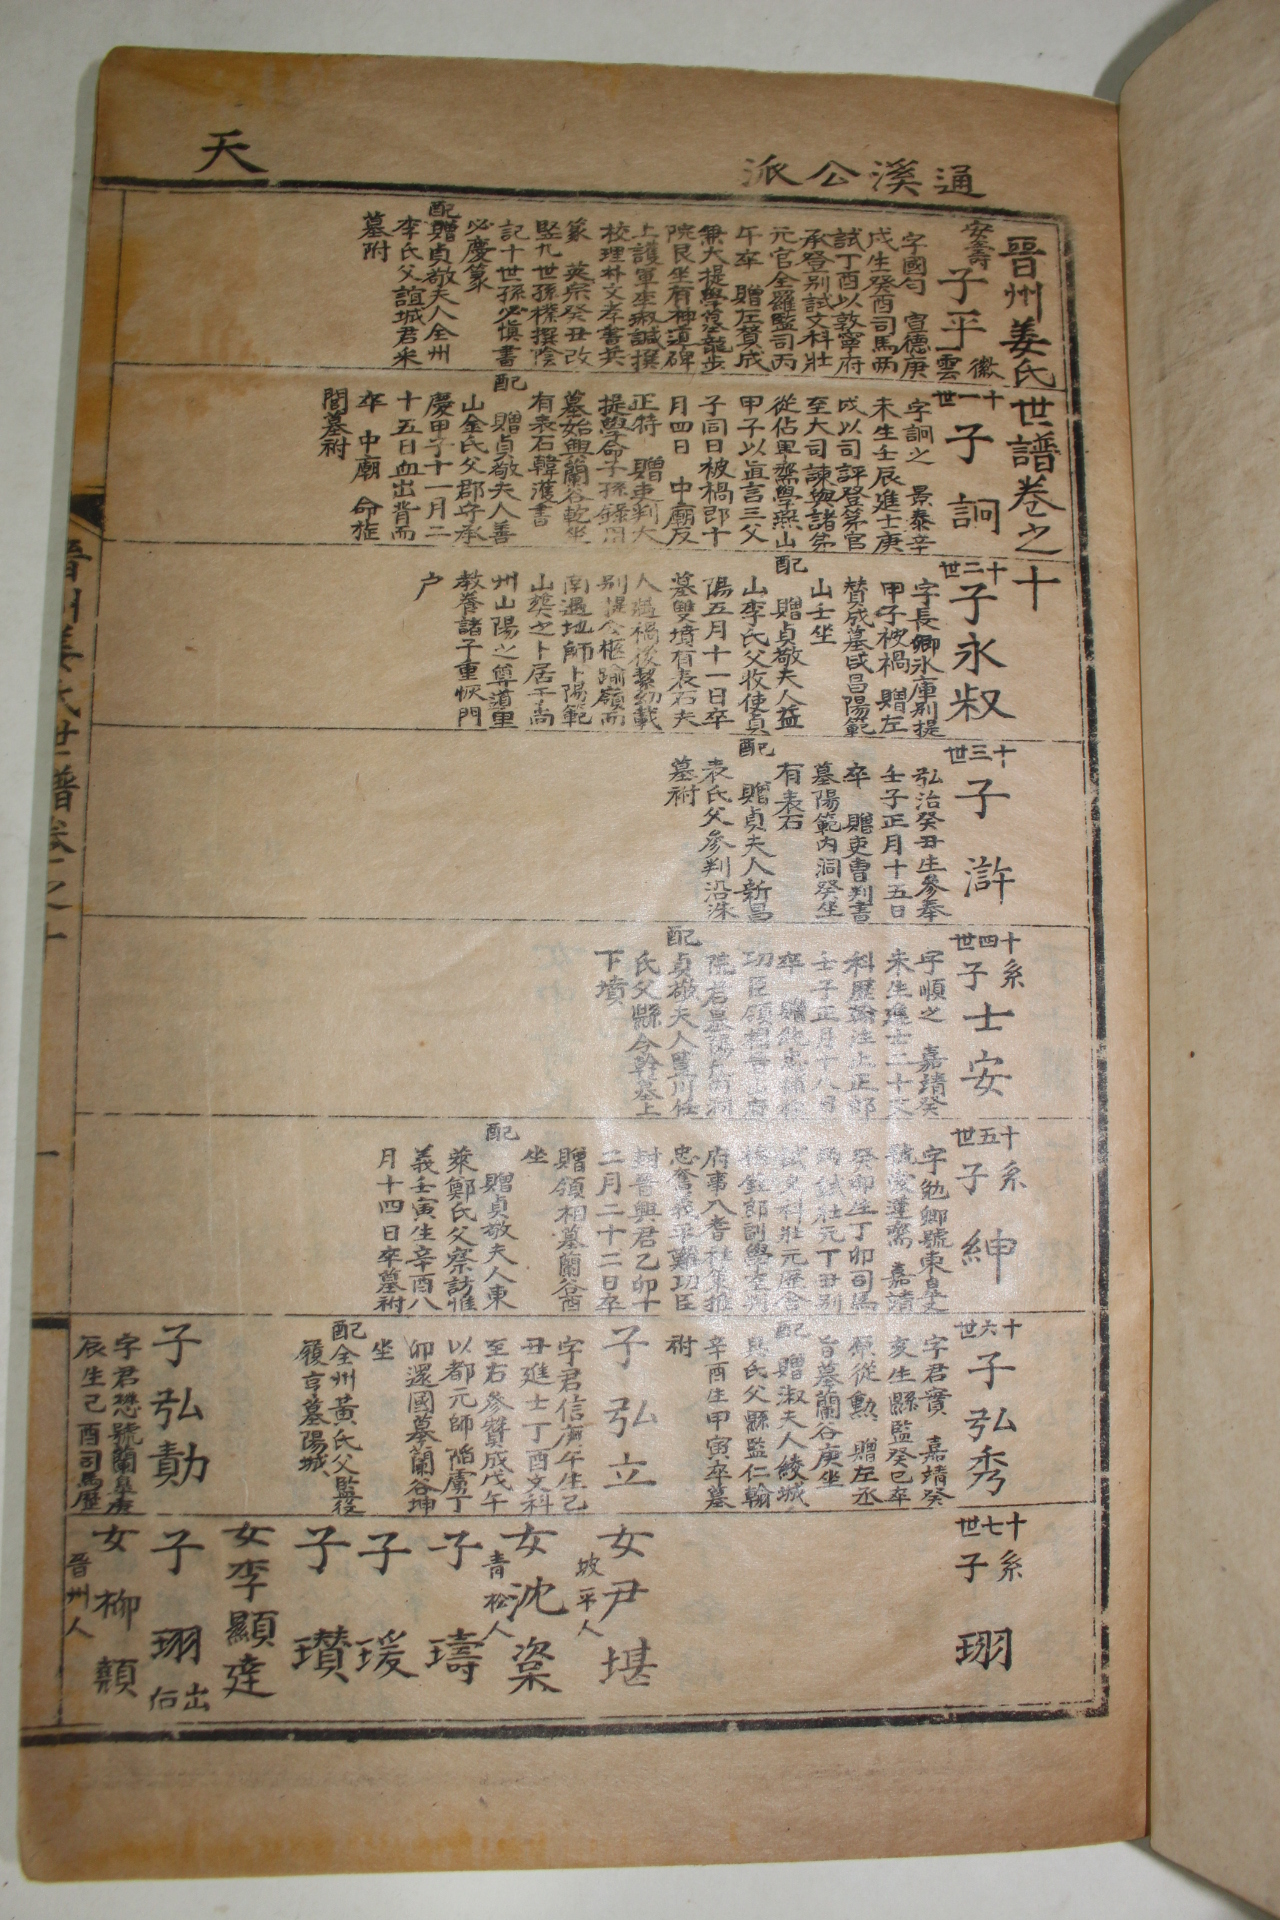 通溪公派
天
晋州姜氏世譜卷之十
安壽
子平
徽雲
字國勻 宣德庚
戌生癸酉司馬兩
試丁酉以敦寧府
承登別試文科壯
元官全羅監司丙
午卒 贈左贊成
兼大提學墓龍步
院艮坐有神道碑
上護軍李淑諴撰
校理朴文孝書兵
篆 英宗癸丑改
竪九世孫樸撰陰
記十世孫必愼書
必慶篆
配贈貞敬夫人全州
李氏父誼城君寀
墓附
十一世
子詗
字詗之 景泰辛
未生壬辰進士庚
戌以司評登第官
至大司諫與諸弟
從佔畢齋學燕山
甲子以直言三父
子同日被禍卽十
月四日 中廟反
正特 贈吏判大
提學命子孫錄用
墓始興蘭谷乾坐
有表石韓濩書
配 贈貞敬夫人善
山金氏父郡守承
慶甲子十一月二
十五日血出背而
卒 中廟 命旌
閭墓祔
十二世
子永叔
字長卿氷庫別提
甲子被禍 贈左
贊成墓咸昌陽範
山壬坐
配 贈貞敬夫人益
山李氏父牧使貞
陽五月十一日卒
墓雙墳有表石夫
人遘禍後挈幼載
別提公柩踰嶺而
南遇地師卜陽範
山葬之卜居于尚
州山陽之尊道里
敎養諸子重恢門
户
十三世
子澣
弘治癸丑生參奉
壬子正月十五日
卒 贈吏曹判書
墓陽範內洞癸坐
有表石
配 贈貞夫人新昌
表氏父參判沿洙
墓祔
十四世
系子士安
字順之 嘉靖癸
未生進士二十文
科歷翰注止正郎
壬子正月十八日
卒
配貞敬夫人豊川任
氏父縣令幹墓上
下墳
十五世
系子紳
字勉卿號東皐
嘉靖
癸卯生丁卯司馬
兩試壯元丁丑別
試文科壯元歷舍
府事入耆社策推
忠奮義平難功臣
封晋興君乙卯十
二月二十二日卒
贈領相墓蘭谷酉
坐
配 贈貞敬夫人東
萊鄭氏父察訪惟
義壬寅生辛酉八
月十四日卒墓祔
十六世
子弘秀
字君實 嘉靖癸
亥生縣監癸巳卒
原從勳 贈左丞
旨墓蘭谷庚坐
配 贈淑夫人綾城
具氏父縣監仁翰
辛酉生甲寅卒墓
祔
子弘立
字君信庚午生己
丑進士丁酉文科
至右參贊成戊午
以都元帥陷虜丁
卯還國墓蘭谷坤
坐
配全州黃氏父監役
嶺亨墓陽城
子弘勣
字君懋號蘭皐庚
辰生己酉司馬歷
十七世
系子珝
女尹堪
坡平人
女沈棨
青松人
子璹
子瑗
子瓚
女李顯達
子珝
出后
女柳頴
晋州人
晋州姜氏世譜卷之十
一